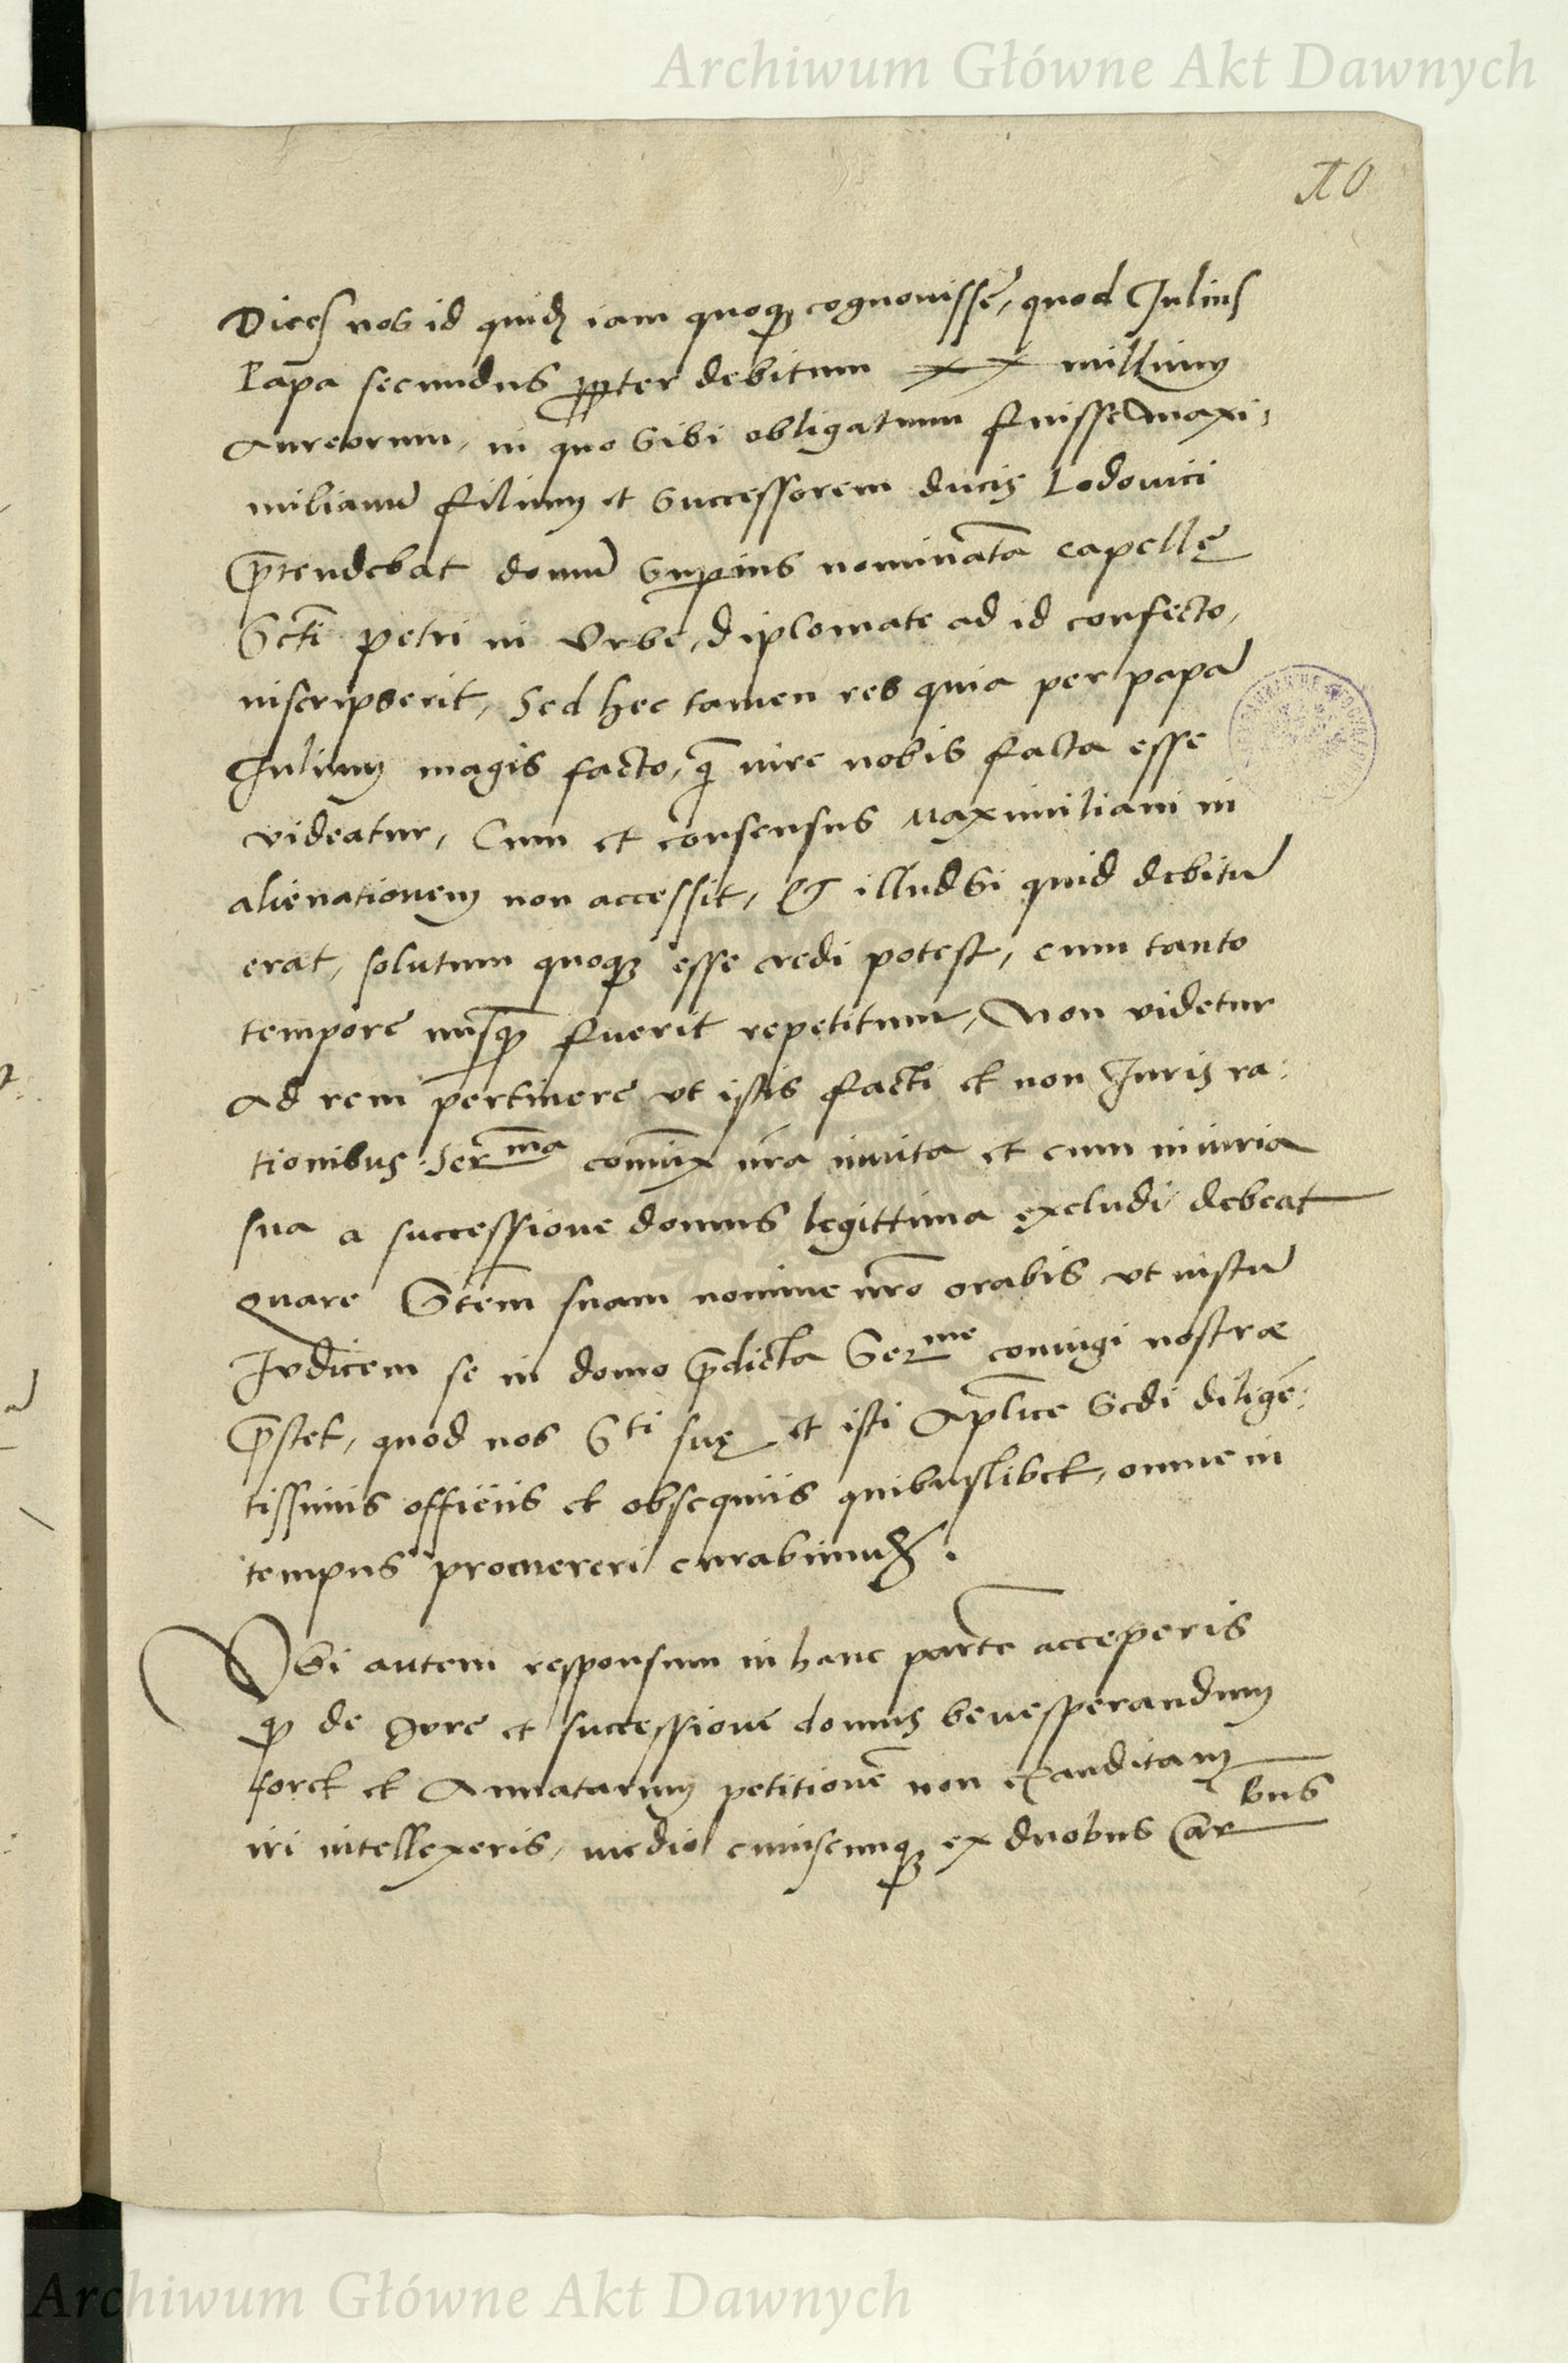 Archiwum Główne Akt Dawnych
10
Dices nos id quidē iam quoq; cognouisse, quod Iulius
Papa secundus ꝓpter debitum XX millium
Aureorum, in quo sibi obligatum fuisse Maxi:
milianū filium et Successorem ducis Lodouici
p̄tendebat domū superius nominatā capellę
Scti Petri in Vrbe, diplomate ad id confecto,
inscripserit, Sed hec tamen res quia per papā
Iulium magis facto, q̄ iure nobis facta esse
videatur, Cum et consensus Maximiliani in
alienationem non accessit, Et illud si quid debitū
erat, solutum quoq; esse credi potest, cum tanto
tempore nusq̄ fuerit repetitum, Non videtur
Ad rem pertinere vt istis facti et non Iuris ra:
tionibus Ser^ma coniūx nr̄a inuita et cum iniuria
sua a successione domus legittima excludi debeat
Quare S^tem suam nomine nr̄o orabis vt iustū
Iudicem se in domo p̄dicta Ser^me coniugi nostræ
p̄stet, quod nos S^ti suę et isti Ap̄lice Sedi diligē:
tissimis officiis et obsequiis quibuslibet, omne in
tempus promereri curabimus.
Vbi autem responsum in hanc partē acceperis
ꝙ de Iure et successione domus bene sperandum
foret et Annatarum petitionē non exauditam
iri intellexeris, medio cuiuscunq; ex duobus Car^bus
Archiwum Główne Akt Dawnych